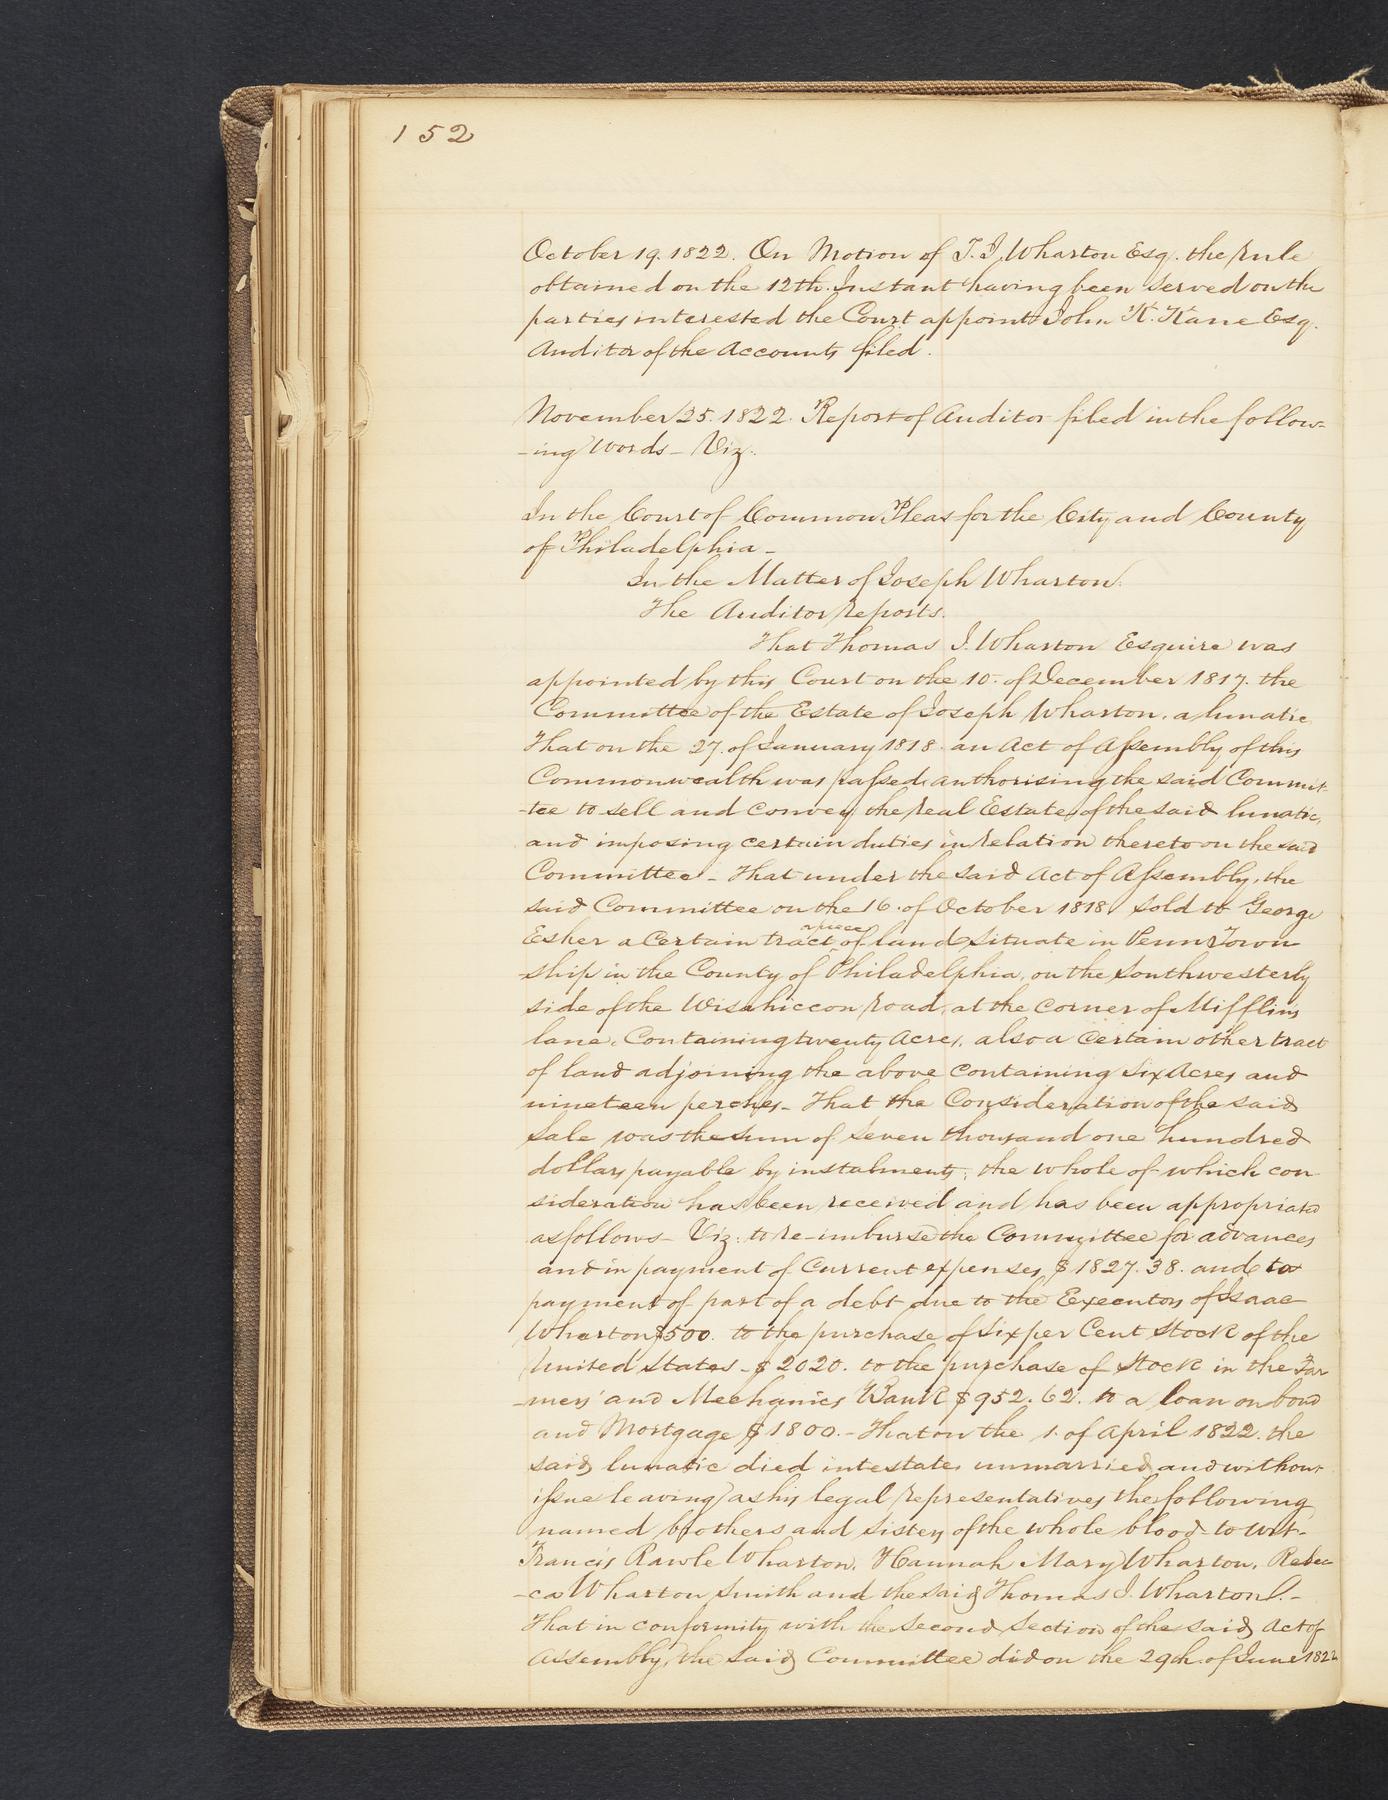 152
October 19. 1822. On Motion of T. I. Wharton Esq. the rule
obtained on the 12th. Instant having been served on the
parties interested the Court appoint John K. Kane Esq.
Auditor of the Accounts filed.
November 25. 1822. Report of Auditor filed in the follow-
-ing words - Viz.
In the Court of Common Pleas for the City and County
of Philadelphia -
In the Matter of Joseph Wharton.
The Auditor reports.
That Thomas I. Wharton Esquire was
appointed by this Court on the 10. of December 1817. the
Committee of the Estate of Joseph Wharton. a lunatic.
That on the 27. of January 1818. an Act of Assembly of this
Commonwealth was passed, authorising the said Commit-
-tee to sell and convey the real Estate of the said lunatic,
and imposing certain duties in relation thereto on the said
Committee - That under the said Act of Assembly, the
said Committee on the 16. of October 1818. sold to George
Esher a certain tract or piece of land situate in Penn Town-
ship in the County of Philadelphia, on the southwesterly
side of the Wisahiccon road, at the corner of Mifflins
lane. Containing twenty Acres, also a certain other tract
of land adjoining the above containing Six Acres and
nineteen perches - That the Consideration of the said
Sale was the sum of Seven thousand one hundred
dollars payable by instalments, the whole of which con-
sideration has been received and has been appropriated
as follows - Viz: to re-imburse the Committee for advances
and in payment of Current expenses $1827.38. and to
payment of part of a debt due to the Executors of Isaac
Wharton $500. to the purchase of Six per Cent Stock of the
United States - $2020. to the purchase of Stock in the Far-
-mers' and Mechanics Bank $952.62. to a loan on bond
and Mortgage $1800. - That on the 1. of April 1822. the
said lunatic died intestate, unmarried, and without
issue leaving as his legal representatives the following
named brothers and sisters of the whole blood to wit -
Francis Rawle Wharton, Hannah Mary Wharton, Rebec-
-ca Wharton Smith and the said Thomas I. Wharton. -
That in conformity with the Second Section of the said Act of
Assembly, the said Committee did on the 29th. of June 1822